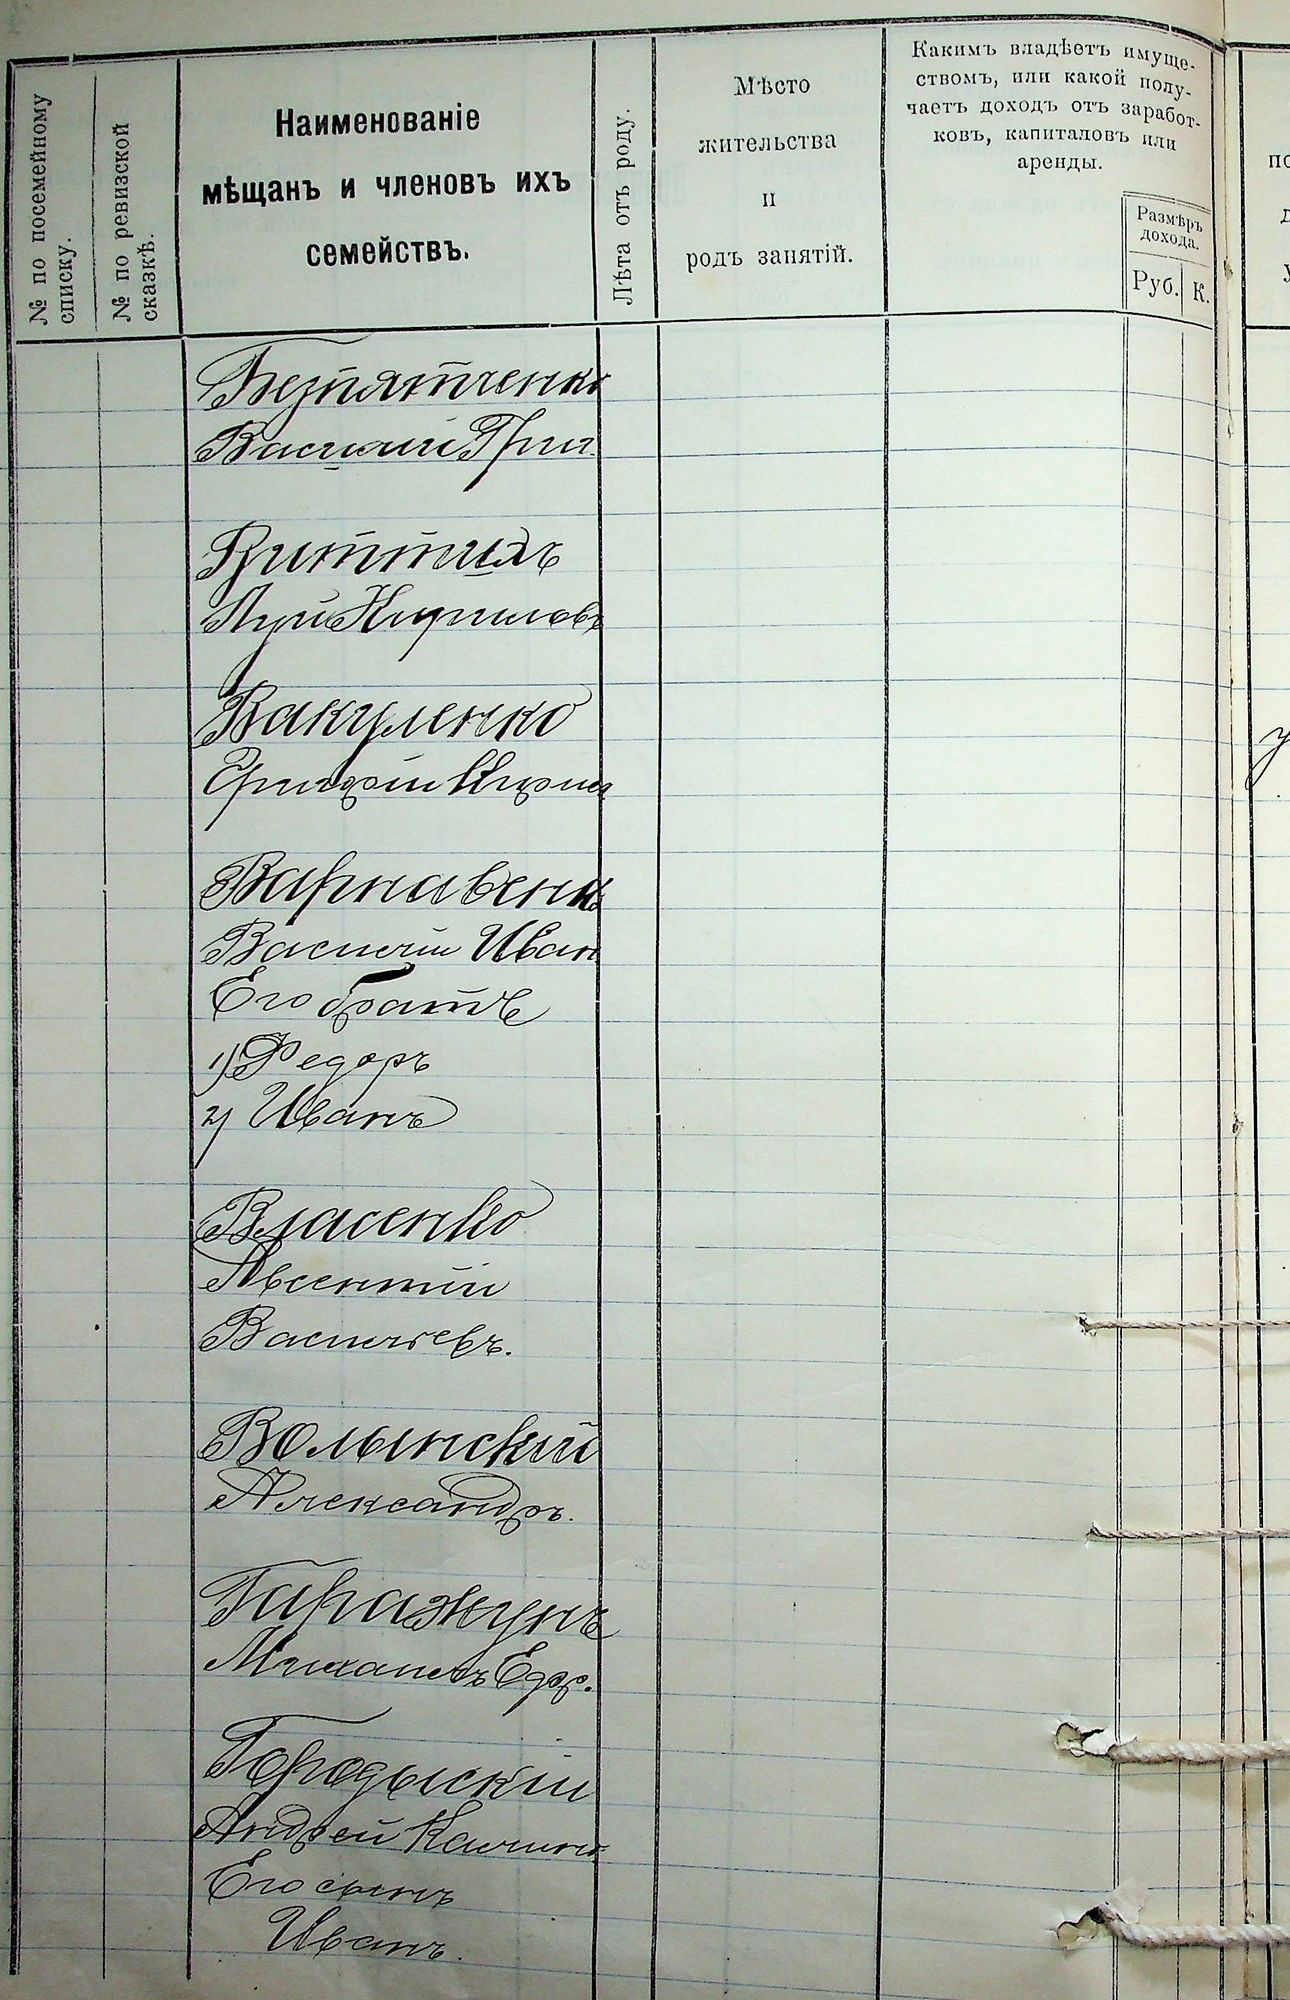 № по посемейному
списку.
№ по ревизской
сказкѣ.
Наименованіе
мѣщанъ и членовъ ихъ
семействъ.
Лѣта отъ роду.
Мѣсто
жительства
и
родъ занятій.
Какимъ владѣетъ имуще-
ствомъ, или какой полу-
чаетъ доходъ отъ заработ-
ковъ, капиталовъ или
аренды.
Размѣръ
дохода.
Руб.
К.
Безпятченко
Василий Григ
Виттиль
Кирилов
Вакуленко
Григорій Кирил
Варнавенко
Василій Иван
Его братъ
1) Федоръ
2) Иванъ
Власенко
Авсентій
Васильевъ.
Волынский
Александръ.
Гаражунъ
Михаилъ Едор.
Городыскій
Андрей Калин
Его сынъ
Иванъ.